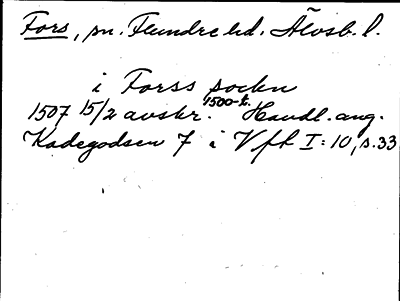 Fors, sn. Flundre hd. Älvsb. l.
i Forss sockn
1507 15/2 avskr. 1500-t. Handl. ang.
Kadegodsen 7 i Vft I:10, s.33